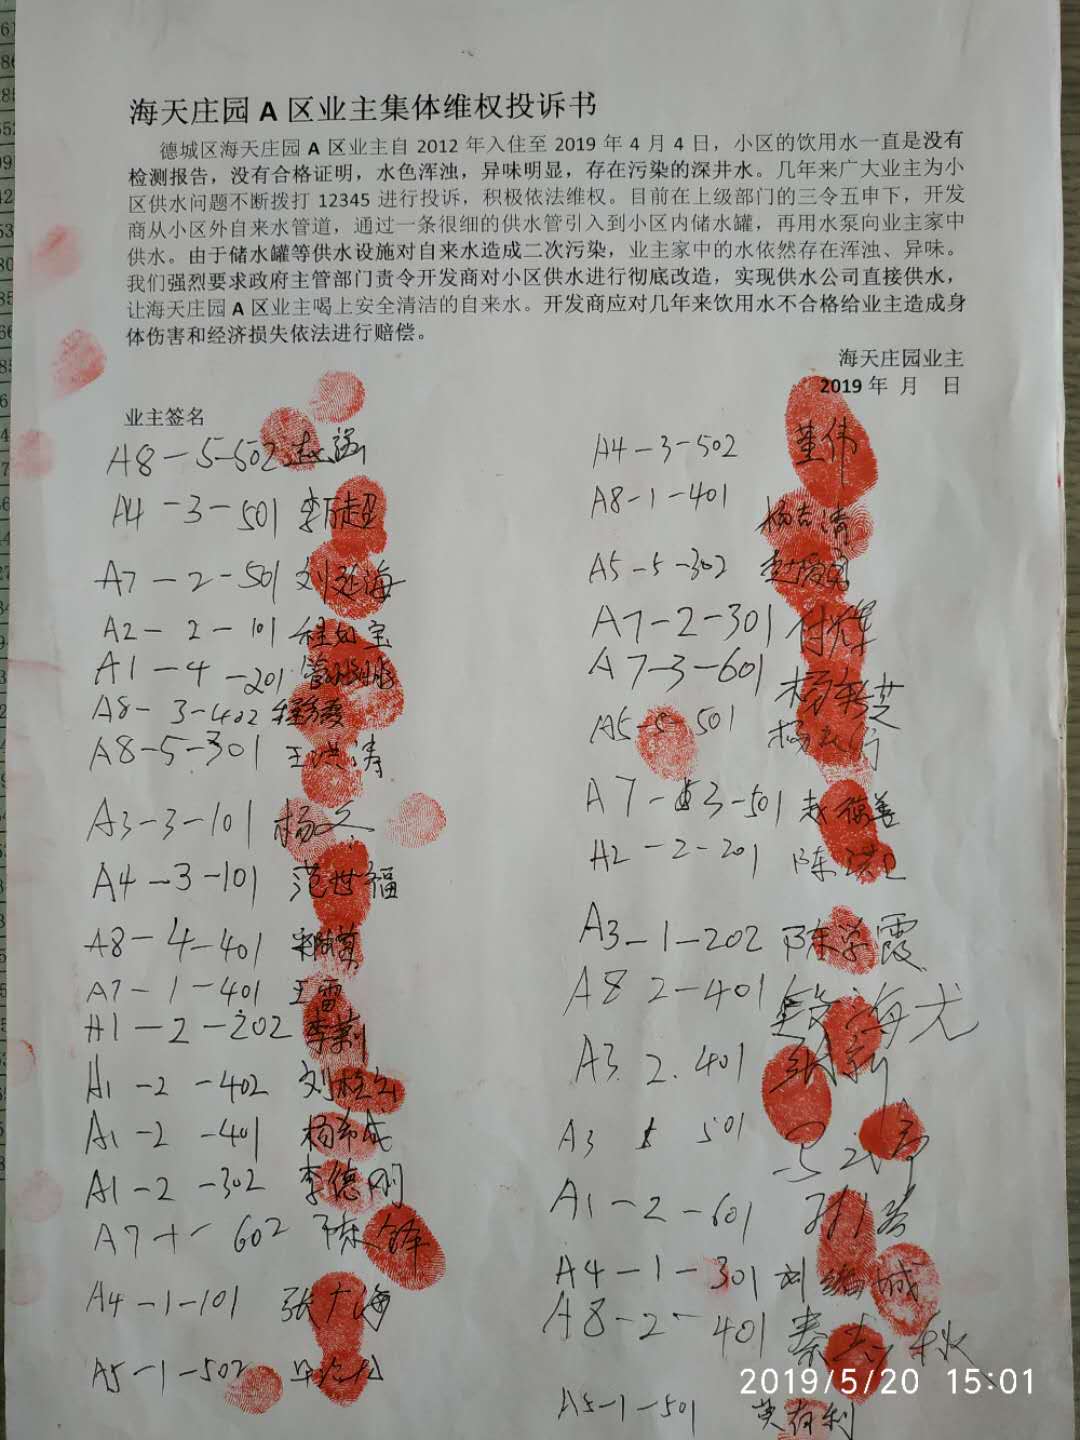 海天庄园 A 区业主集体维权投诉书
德城区海天庄园 A 区业主自 2012 年入住至 2019 年 4 月 4 日，小区的饮用水一直是没有
检测报告，没有合格证明，水色浑浊，异味明显，存在污染的深井水。几年来广大业主为小
区供水问题不断拨打 12345 进行投诉，积极依法维权。目前在上级部门的三令五申下，开发
商从小区外自来水管道，通过一条很细的供水管引入到小区内储水罐，再用水泵向业主家中
供水。由于储水罐等供水设施对自来水造成二次污染，业主家中的水依然存在浑浊、异味。
我们强烈要求政府主管部门责令开发商对小区供水进行彻底改造，实现供水公司直接供水，
让海天庄园 A 区业主喝上安全清洁的自来水。开发商应对几年来饮用水不合格给业主造成身
体伤害和经济损失依法进行赔偿。
海天庄园业主
2019 年 月 日
业主签名
A8-5-502
A4-3-501 李万超
A7-2-501 刘延海
A2-2-101 程如宝
A1-4-201
A8-3-402
A8-5-301 王洪涛
A3-3-101 杨文
A4-3-101 范世福
A8-4-401
A7-1-401 王雷
A1-2-202 李莉
A1-2-402
A1-2-401 杨希成
A1-2-302 李德刚
A7-1-602 陈锋
A4-1-101 张大海
A5-1-502
A4-3-502 董伟
A8-1-401 杨吉清
A5-5-302
A7-2-301 付辉
A7-3-601
A5-5-501
A7-3-501 赵德善
A2-2-201
A3-1-202 陈学霞
A8 2-401
A3.2.401
A3 501
A1-2-601
A4-1-301
A8-2-401
A5-1-501
2019/5/20 15:01